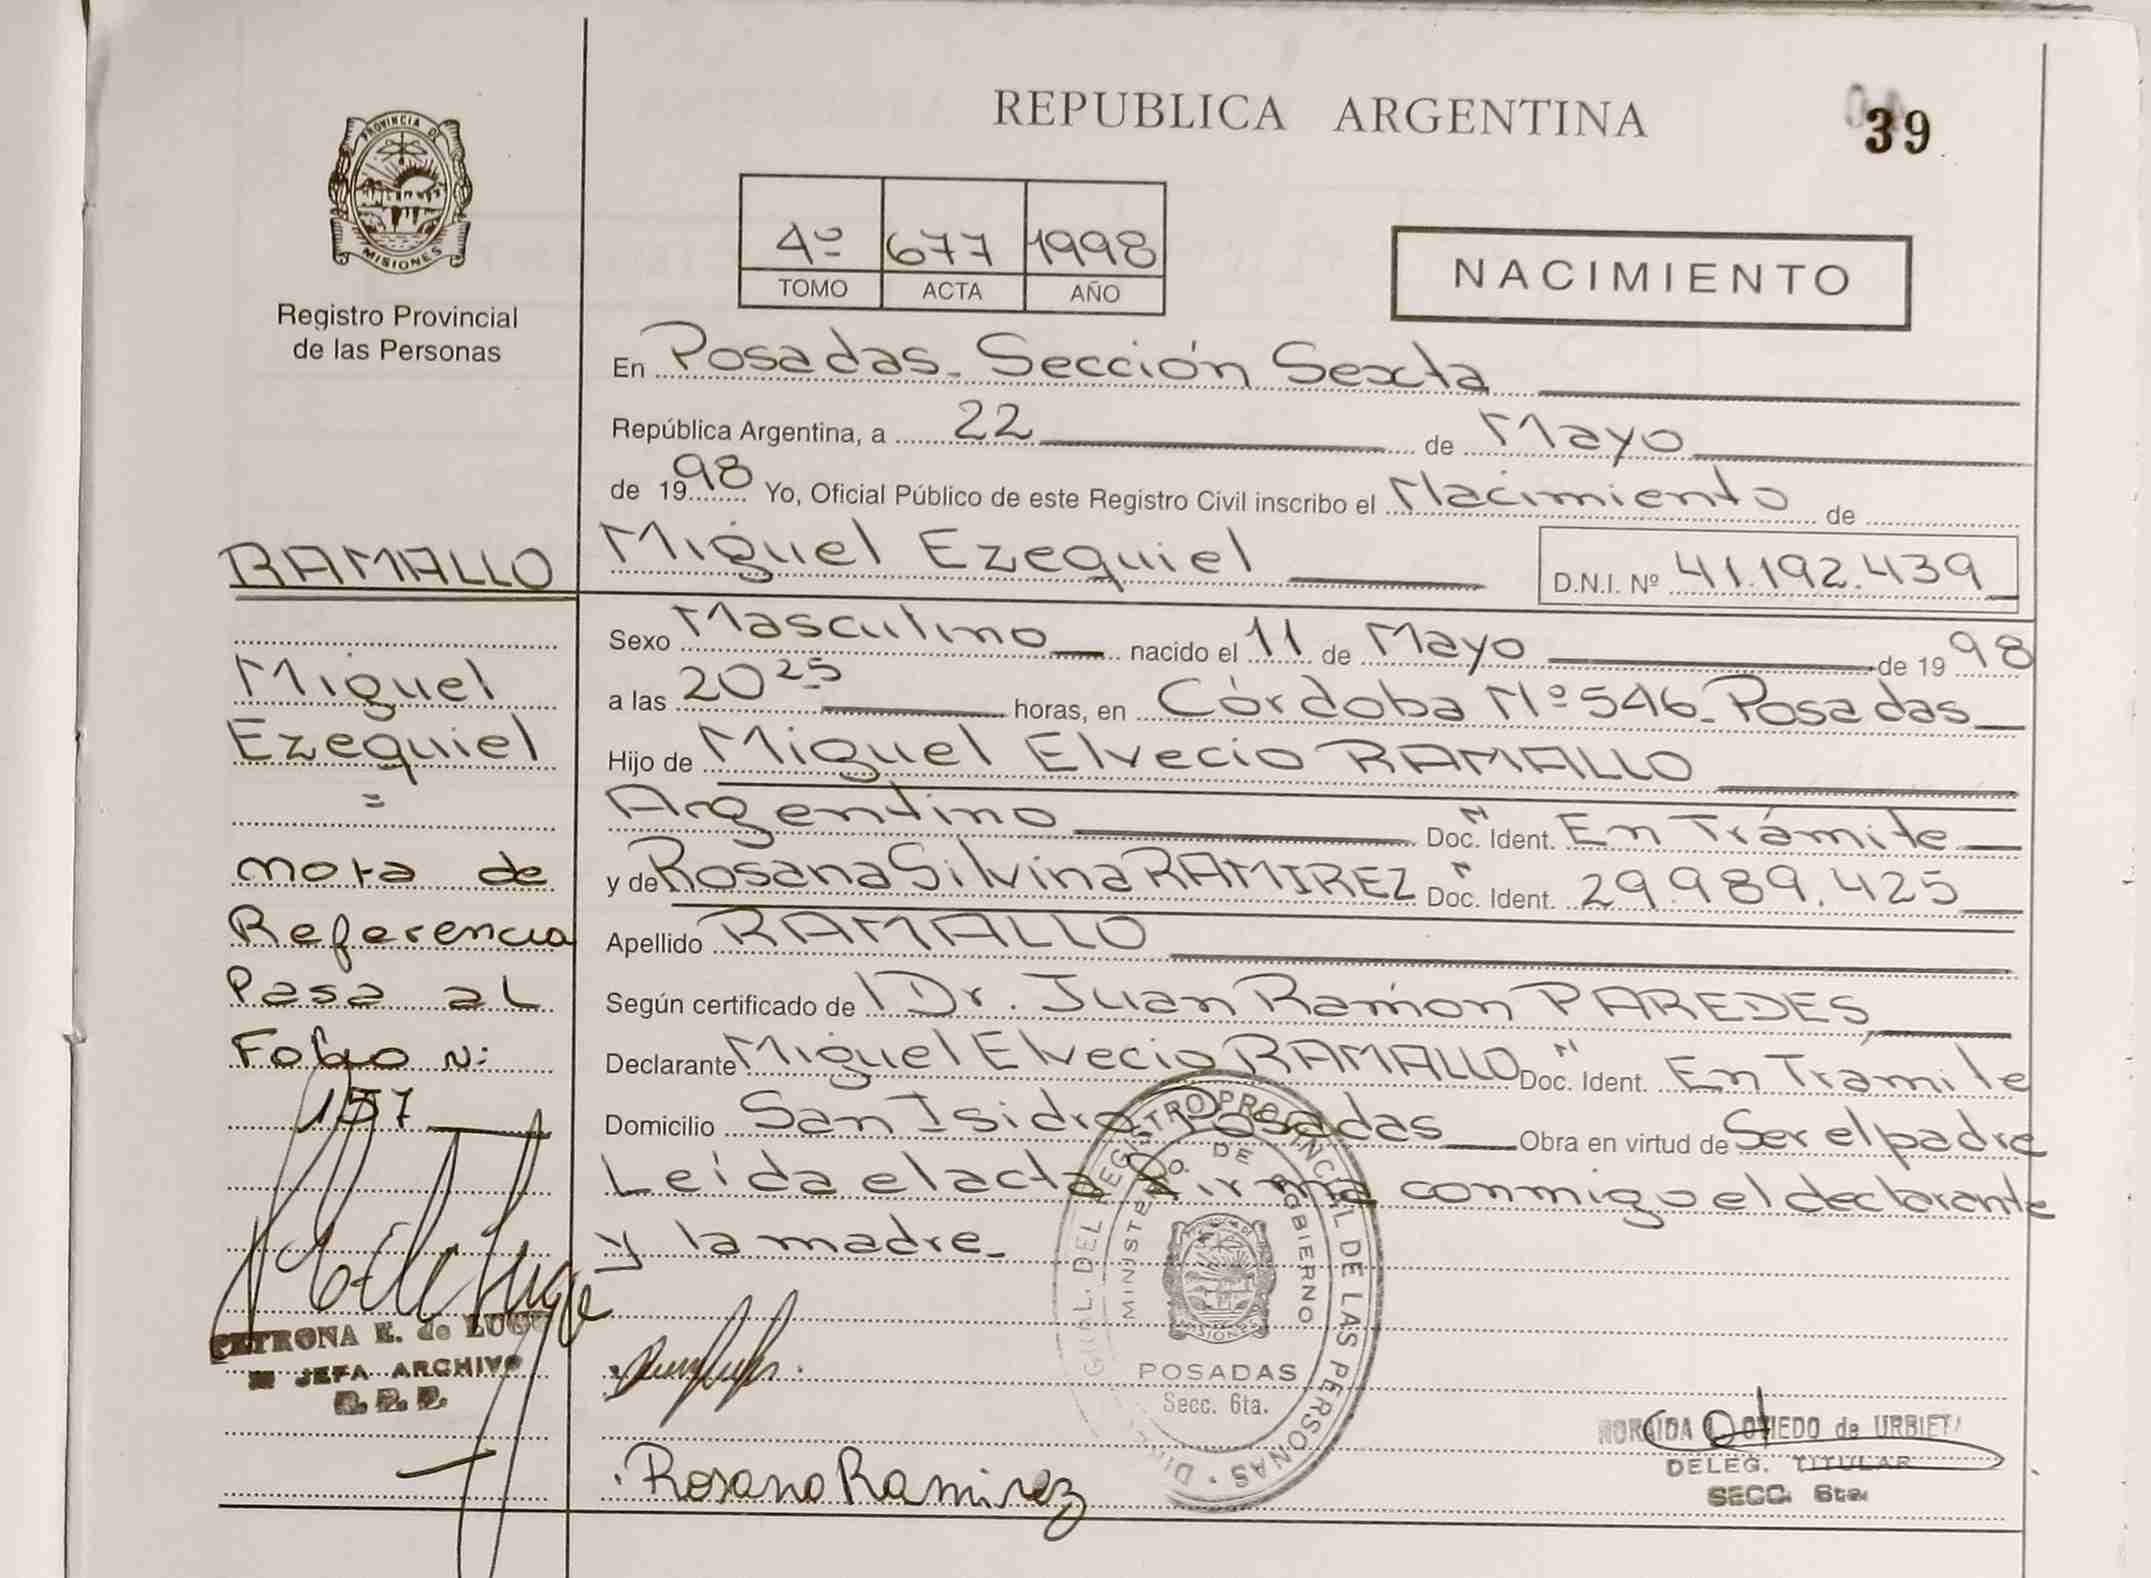 REPUBLICA ARGENTINA
39
PROVINCIA DE
MISIONES
Registro Provincial
de las Personas
4º 677 1998
TOMO ACTA AÑO
NACIMIENTO
En Posadas - Sección Sexta
República Argentina, a 22 de Mayo
de 1998 Yo, Oficial Público de este Registro Civil inscribo el Nacimiento de
RAMALLO Miguel Ezequiel D.N.I. Nº 41.192.439
Sexo Masculino nacido el 11 de Mayo de 1998
a las 20 25 horas, en Córdoba Nº 546 - Posadas
Hijo de Miguel Elvecio RAMALLO
Argentino Doc. "N" Ident. En Trámite
y de Rosana Silvina RAMIREZ Doc. "N" Ident. 29.989.425
Apellido RAMALLO
Según certificado de Dr. Juan Ramon PAREDES
Declarante Miguel Elvecio RAMALLO Doc. "N" Ident. En Trámite
Domicilio San Isidro Posadas Obra en virtud de Ser el padre
Leída el acta Firma conmigo el declarante
y la madre -
Miguel
Ezequiel
=
nota de
Referencia
Pasa al
Folio Nº
157
PETRONA E. de LUGO
JEFA ARCHIVO
R. P. P.
DEL REGISTRO PROVINCIAL DE LAS PERSONAS
MINISTERIO DE GOBIERNO
MISIONES
POSADAS
Secc. 6ta.
Rosana Ramirez
OVIEDO de URBIETA
DELEG. TITULAR
SECC. 6ta.